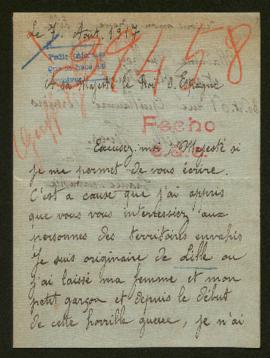 Le 7 Août 1917
99458
A sa Majesté le Roi d'Espagne
Fecho
Excusez-moi Majesté si
je me permet de vous écrire.
C'est à cause que j'ai appris
que vous vous interressiez aux
personnes des territoires envahis
Je suis originaire de Lille ou
j'ai laissé ma femme et mon
petit garçon et depuis le début
de cette horrible guerre, je n'ai